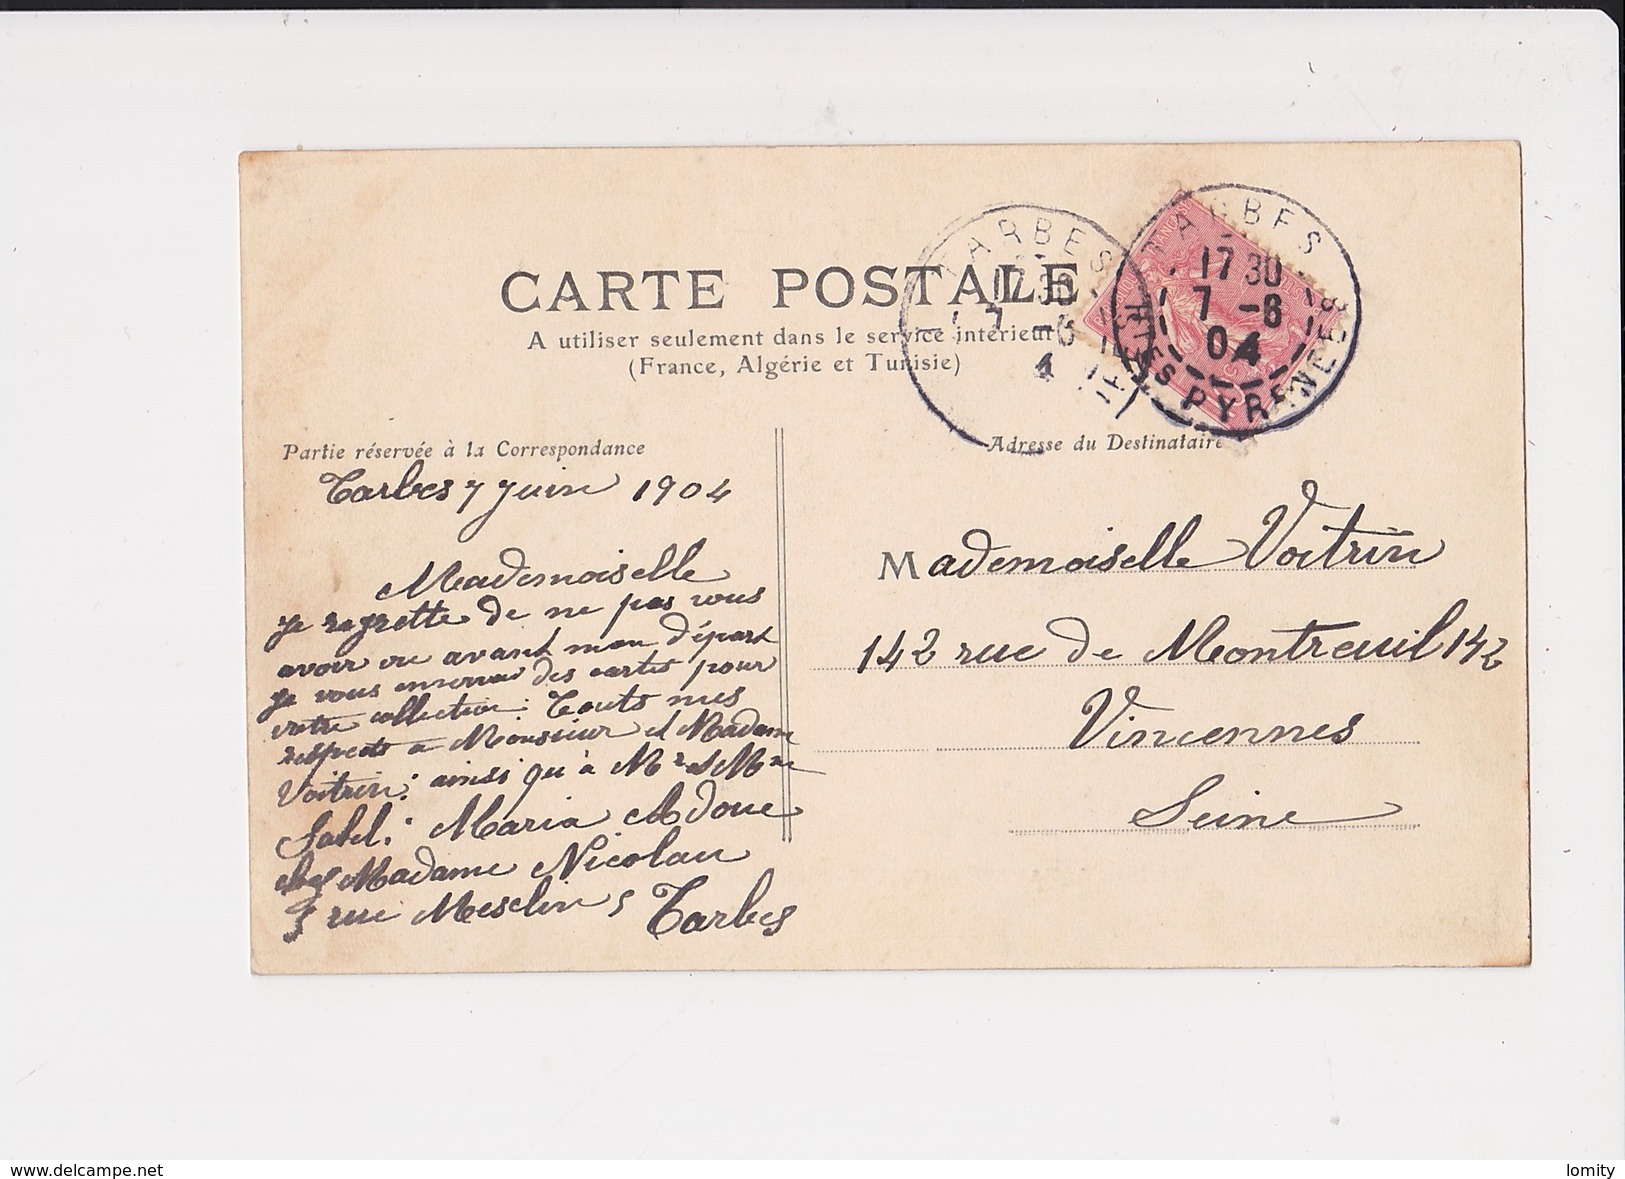 CARTE POSTALE
A utiliser seulement dans le service intérieur
(France, Algérie et Tunisie)
TARBES
17 30
7 -6
4
TARBES
17 30
7 -6
04
HTES PYRENEES
Partie réservée à la Correspondance
Adresse du Destinataire
Tarbes 7 Juin 1904
Mademoiselle
je regrette de ne pas vous
avoir vu avant mon départ
je vous enverrai des cartes pour
votre collection: Touts mes
respects a Monsieur et Madame
Voitrin: ainsi qu'à Mr et Mme
Maria Adoue
chez Madame Nicolau
rue Mesclin 5 Tarbes
Mademoiselle Voitrin
142 rue de Montreuil 142
Vincennes
Seine
www.delcampe.net
lomity